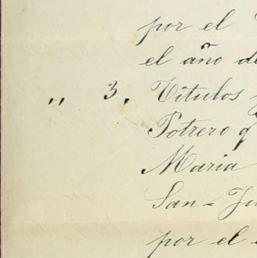 por el
el año de
" 3. Titulos
Potrero q
Maria
San-Ju
por el